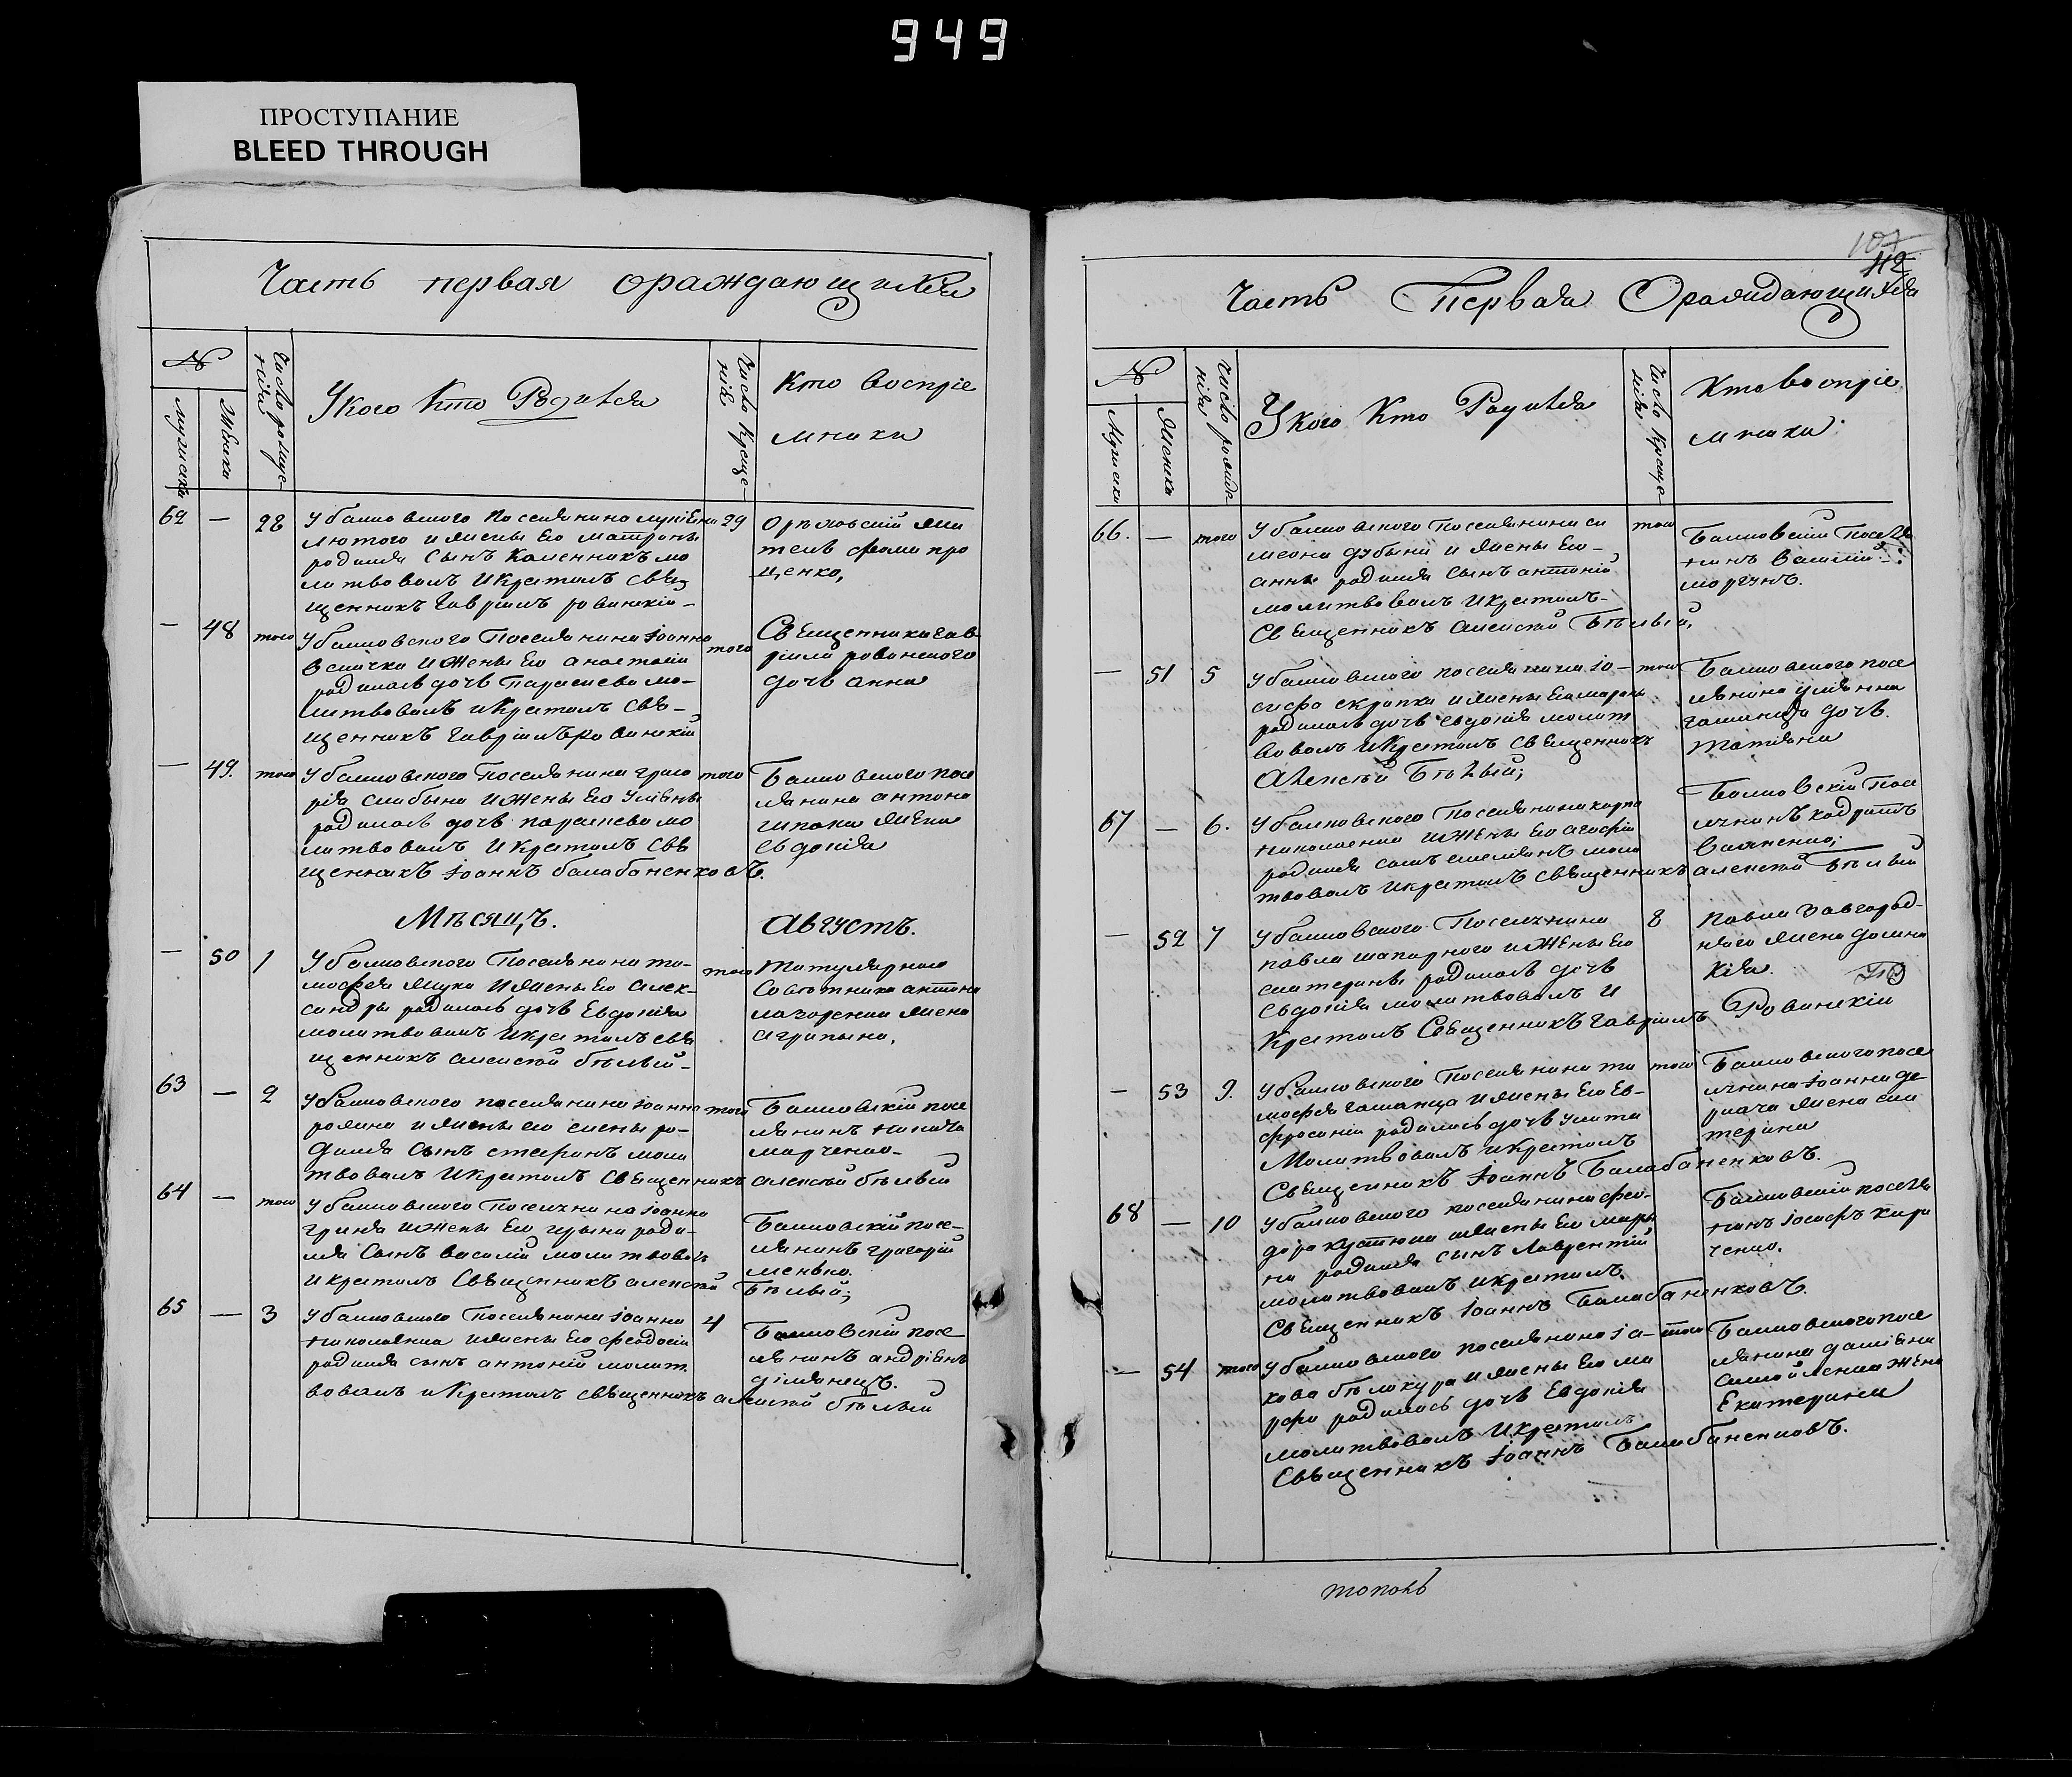 949
ПРОСТУПАНИЕ
BLEED THROUGH
Часть первая ораждающихся
№
мужеска
Женска
Число рожде-
нія
У кого Кто Родился
Число Креще-
нія
Кто воспріе
мники
62 — 28
У балковского поселянина
лютого и жены Его матроны
родился сынъ Каленникъ мо
литвовалъ и Крестилъ свя
щенникъ Гавріилъ ровинскій
29
житель фома про
ценко,
— 48 того
У балковского Поселянина Іоанна
величка и Жены Его анастасіи
родилась дочь Параскева мо-
литвовалъ и Крестилъ свя-
щенникъ Гавріилъ ровинскій
того
Священника гав
ріила ровинского
дочь анна
— 49. того
У балковского Поселянина григо
рія и Жены Его
родилась дочь параскева мо
литвовалъ и Крестилъ свя
щенникъ Іоаннъ балабаненковъ.
того
Балковского посе
лянина антона
шпака жена
Евдокія
Мѣсяцъ. Августъ.
— 50 1
У балковского Поселянина ти-
мофея и жены Его алек-
сандры родилась дочь Евдокія
молитвовалъ и Крестилъ свя
щенникъ алексѣй бѣлый
того
Титулярного
Советника антона
жена
агрипына,
63 — 2
У балковского поселянина іоанна
и жены его елены ро-
дился сынъ стефанъ моли
твовалъ и Крестилъ Священникъ алексѣй бѣлый
того
Балковскій посе
лянинъ
марченко
64 — того
У балковского Поселянина іоанна
гриня и Жены Его ирыны роди-
лся Сынъ василій молитвовалъ
и Крестилъ Священникъ алексѣй Бѣлый;
Балковскій посе-
лянинъ григорій
65 — 3
У балковского Поселянина іоанна
и жены Его феодосіи
родился сынъ антоній молит
вовалъ и Крестилъ священникъ алексѣй бѣлый
4
Балковскій посе-
лянинъ андріянъ
107
112
Часть Первая Ораждающихся
№
Мужеска
Женска
Число рожде
нія
У кого Кто Родился
Число Креще
нія
Кто воспріе
мники
66. — того
У балковского Поселянина си
меона дубыни и жены Его
анны родился сынъ антоній
молитвовалъ и Крестилъ
Священникъ алексѣй Бѣлый,
того
Балковскій Поселя
нинъ василій
моргунъ.
— 51 5
У балковского поселянина іо-
сифа скрипки и жены Его марыны
родилась дочь евдокія молит
вовалъ и Крестилъ священникъ
Алексѣй Бѣлый;
того
Балковского посе
лянина
дочь
татіяна
67 — 6.
У балковского Поселянина карпа
и Жены Его агафіи
родился сынъ емеліянъ моли
твовалъ и крестилъ священникъ алексѣй Бѣлый
Балковскій Посе
лянинъ кодратъ
— 52 7
У балковского Поселянина
павла шапарного и Жены Его
екатерины родилась дочь
Евдокія молитвовалъ и
Крестилъ Священникъ Гавріилъ Ровинскій
8
Павла
жена домни
кія.
— 53 9.
У балковского Поселянина ти
мофея и жены Его Ев-
фросиніи родилась дочь улита
Молитвовалъ и Крестилъ
Священникъ Іоаннъ Балабаненковъ.
того
Балковского посе
лянина Іоанна де-
ркача жена ека
терина
68 — 10
У балковского поселянина фео-
дора и жены Его мары
ны родился сынъ Лаврентій
молитвовалъ и крестилъ
Священникъ Іоаннъ Балабаненковъ.
Балковскій поселя
нинъ Іосифъ кири
ченко.
— 54 того
У балковского поселянина іа-
кова бѣлокура и жены Его ма
рфы родилась дочь Евдокія
молитвовалъ и Крестилъ
Священникъ Іоаннъ Балабаненковъ.
того
Балковского посе
лянина даміяна
жена
Екатерина